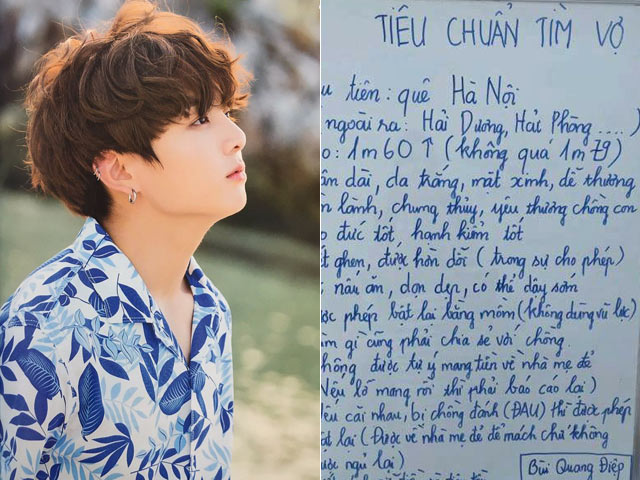 TIÊU CHUẨN TÌM VỢ
u tiên : quê Hà Nội
ngoài ra : Hải Dương, Hải Phòng ....)
o : 1m60 ↑ (không quá 1m79)
ân dài, da trắng, mặt xinh, dễ thương
n lành, chung thủy, yêu thương chồng con
o đức tốt, hạnh kiểm tốt
t ghen, được hờn dỗi (trong sự cho phép)
nấu ăn, dọn dẹp, có thể dậy sớm
ợc phép bật lại bằng mồm (không dùng vũ lực)
àm gì cũng phải chia sẻ với chồng
hông được tự ý mang tiền về nhà mẹ đẻ
Nếu lỡ mang rồi thì phải báo cáo lại)
ếu cãi nhau, bị chồng đánh (ĐAU) thì được phép
ật lại (Được về nhà mẹ đẻ để mách chứ không
ược ngủ lại)
Bùi Quang Điệp